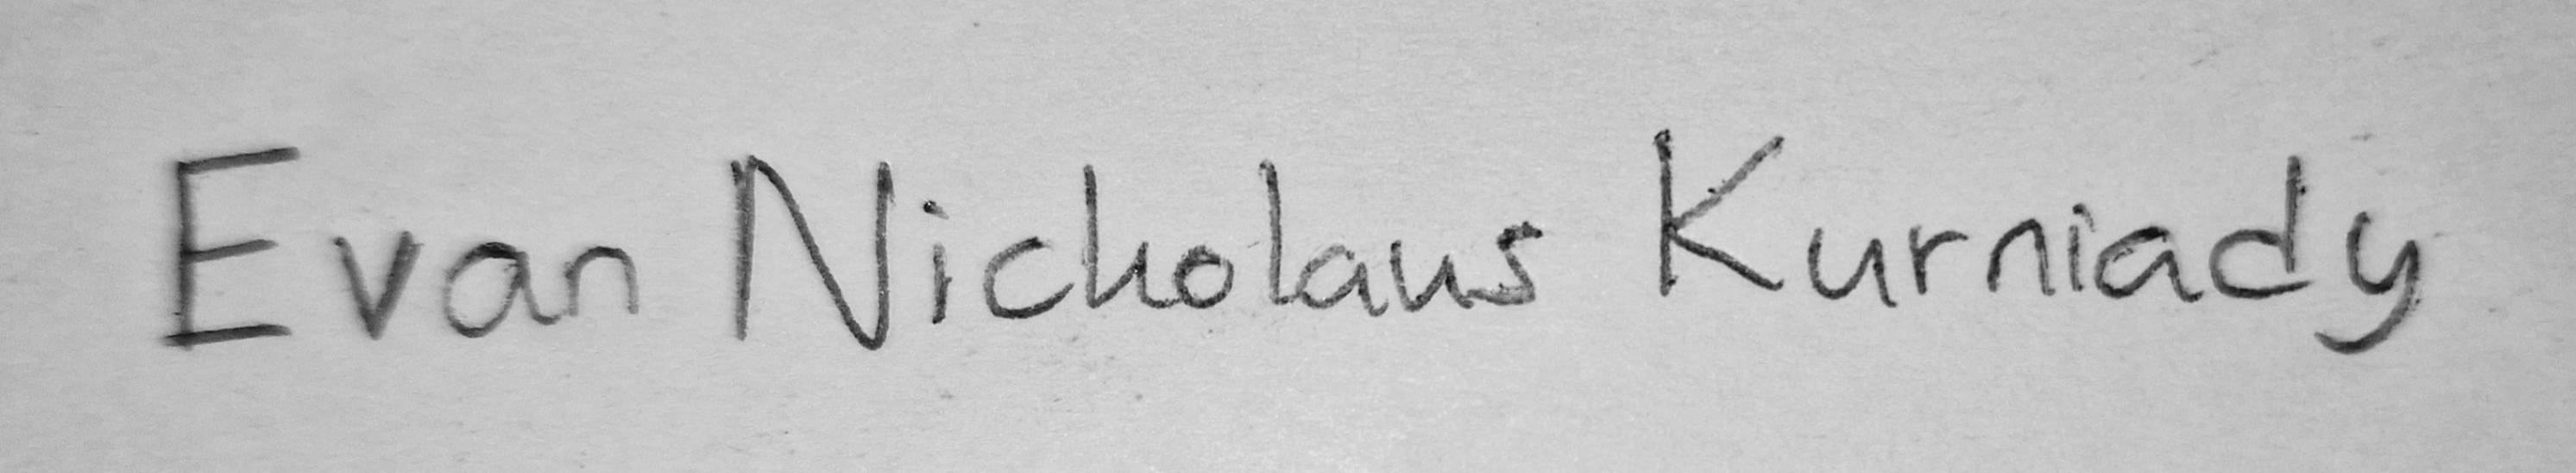 Evan Nicholaus Kurniady